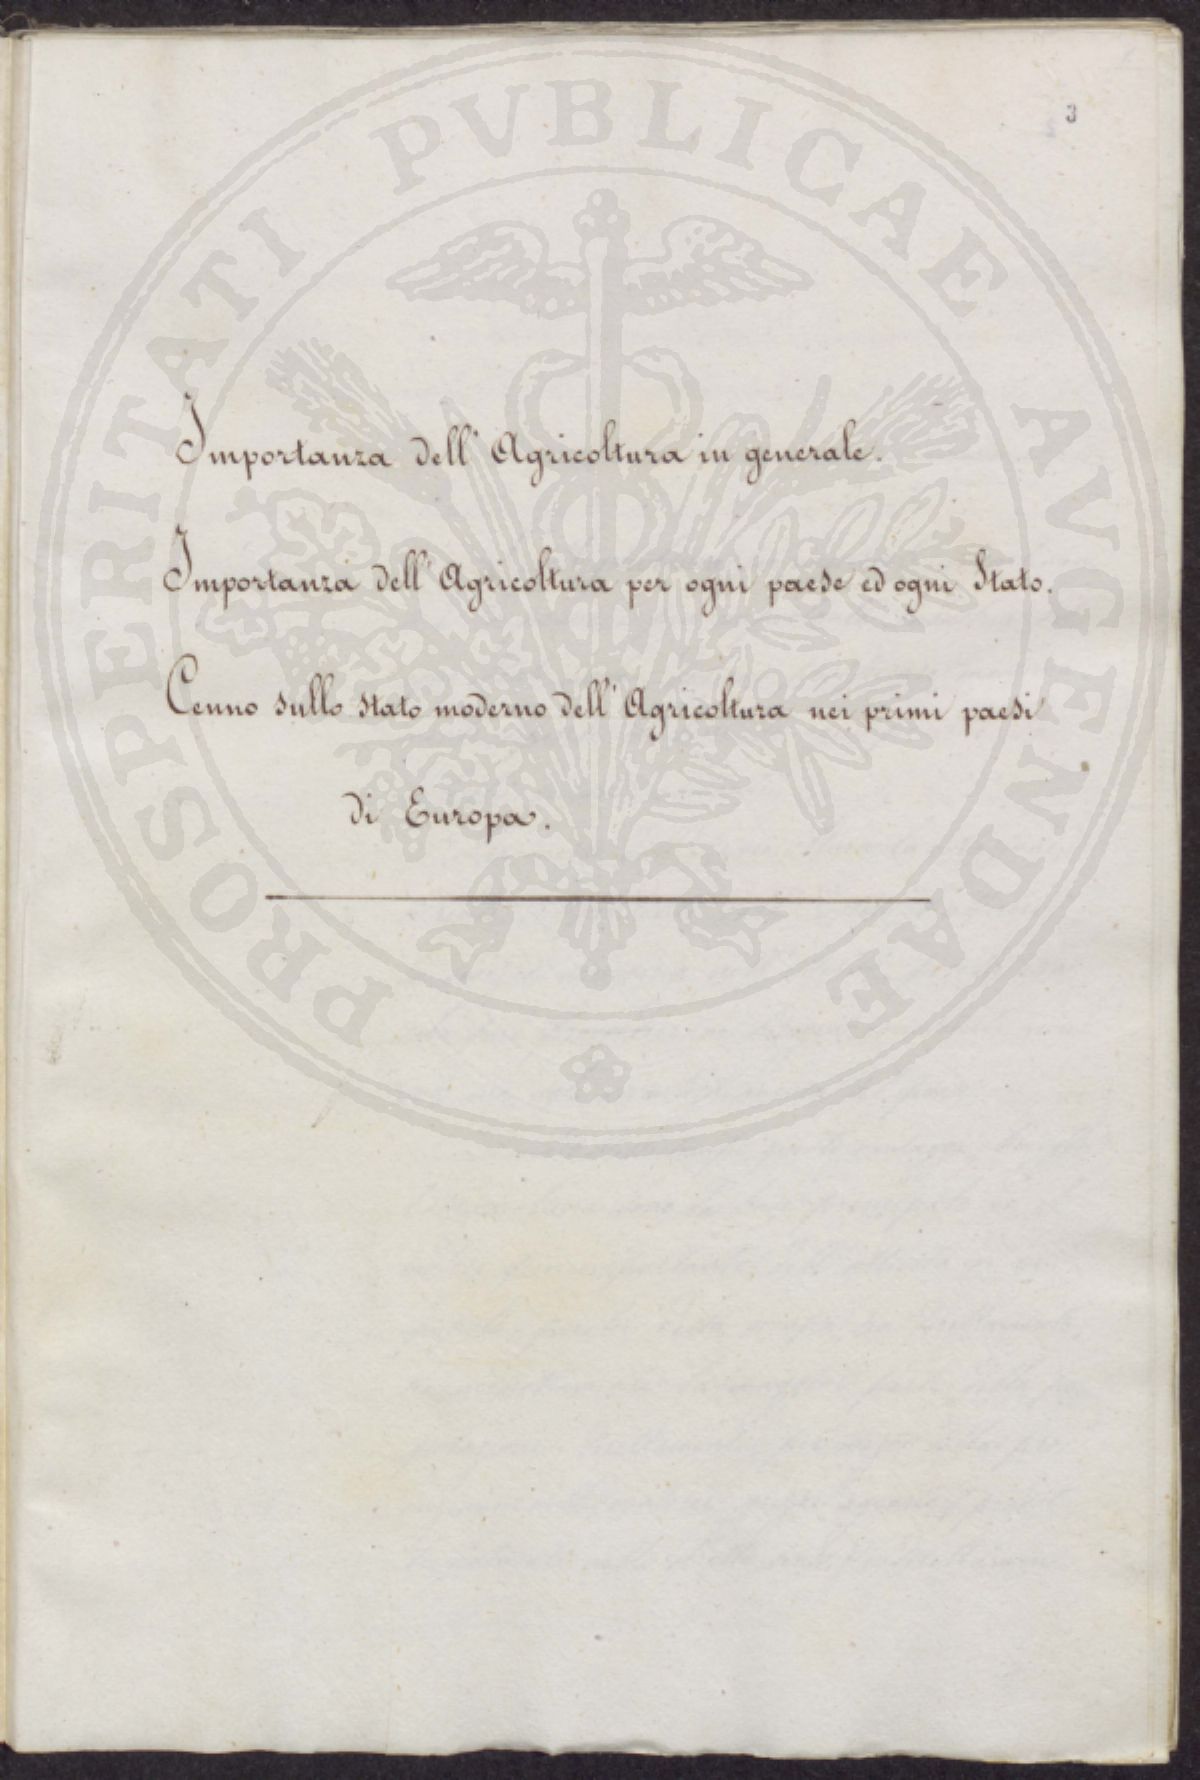 3
Importanza dell'Agricoltura in generale.
Importanza dell'Agricoltura per ogni paese ed ogni Stato.
Cenno sullo stato moderno dell'Agricoltura nei primi paesi
di Europa.
PROSPERITATI PVBLICAE AVGENDAE